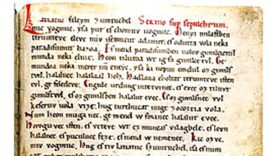 Latiatuc feleym zumtuchel Sermo sup sepulchrum.
mic vogmuc. yſa pur eſ chomuv uogmuc. Menyi miloſtben
terumteve eleve miv iſemucut adamut. eſ odutta vola neki
paradiſumut hazoa. Eſ mend paradiſumben uolov gimilcictul
munda neki elnie. Heon tilutoa wt ig fa gimilce tvl.
Ge mundoa neki meret nu eneyc. yſa ki nopun emdul oz gimilſ
twl. halalnec halalaal holz. Hadlaua choltat terumteve iſten
tul. ge feledeve. Engede urdung intetvinec. eſ evec oz tiluvt
gimilſtwl. es oz gimilſben halalut evec. Eſ oz gimilſnec vvl
keſeruv uola vize. hug turchucat mige zocoztia vola.
Num heon muga nec. ge mend w foianec halalut evec.
Horogu vec iſten. eſ veteve wt ez muncaſ vilagbele. eſ levn
halalnec eſ poculnec feze. eſ mend w nemenec. Kic ozvc. miv
vogmuc. Hog eſ tiv latiatuv